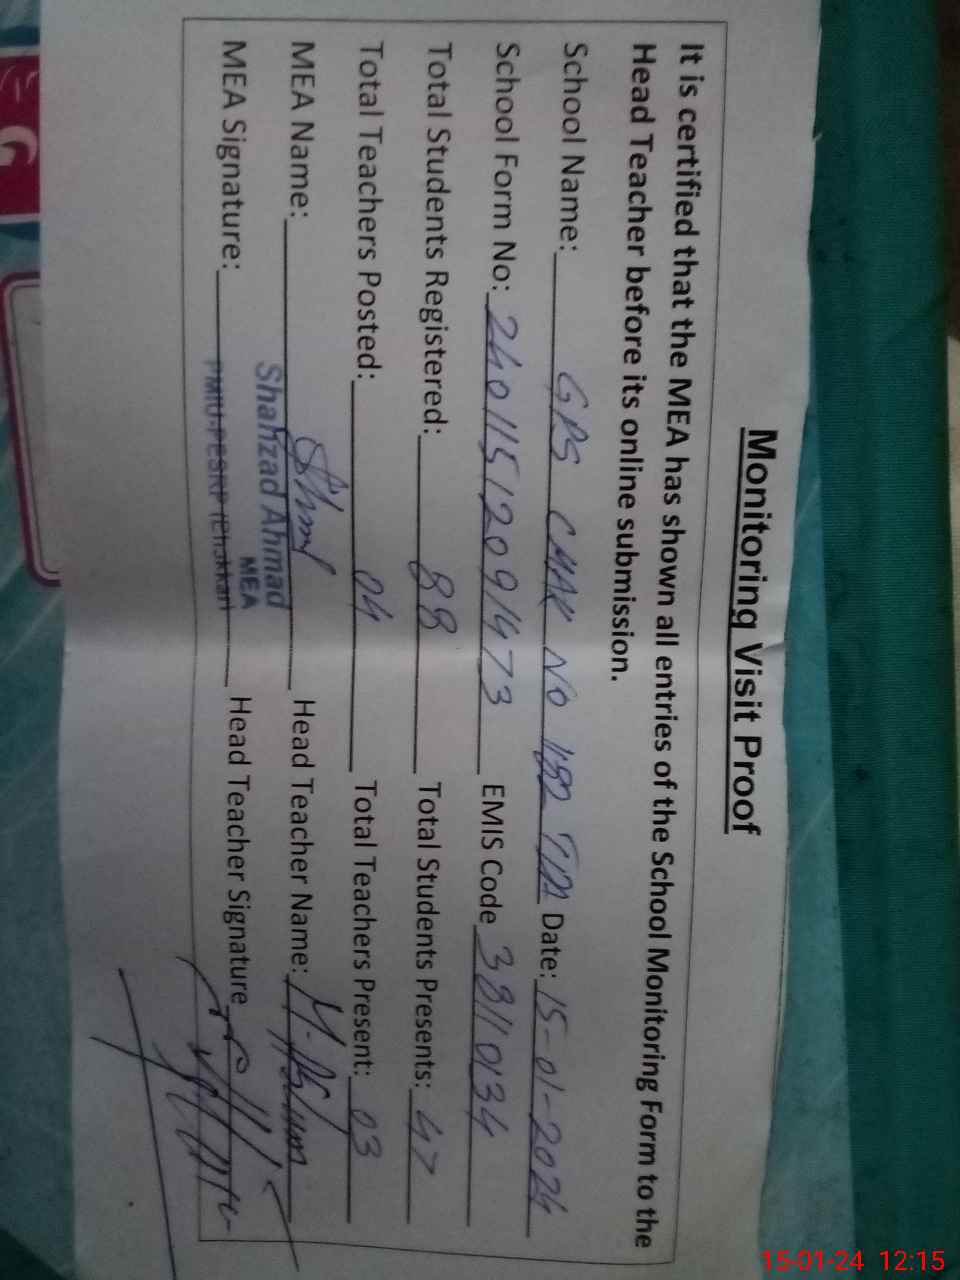 Monitoring Visit Proof
It is certified that the MEA has shown all entries of the School Monitoring Form to the
Head Teacher before its online submission.
School Name: GPS CHAK NO 1182 TDA Date: 15-01-2024
School Form No: 24011512091473 EMIS Code 38110134
Total Students Registered: 88 Total Students Presents: 47
Total Teachers Posted: 04 Total Teachers Present: 03
MEA Name: Head Teacher Name: M. Aslam
Shahzad Ahmad
MEA
MEA Signature: PMIU-PESRP (Bhakkar) Head Teacher Signature
15-01-24 12:15